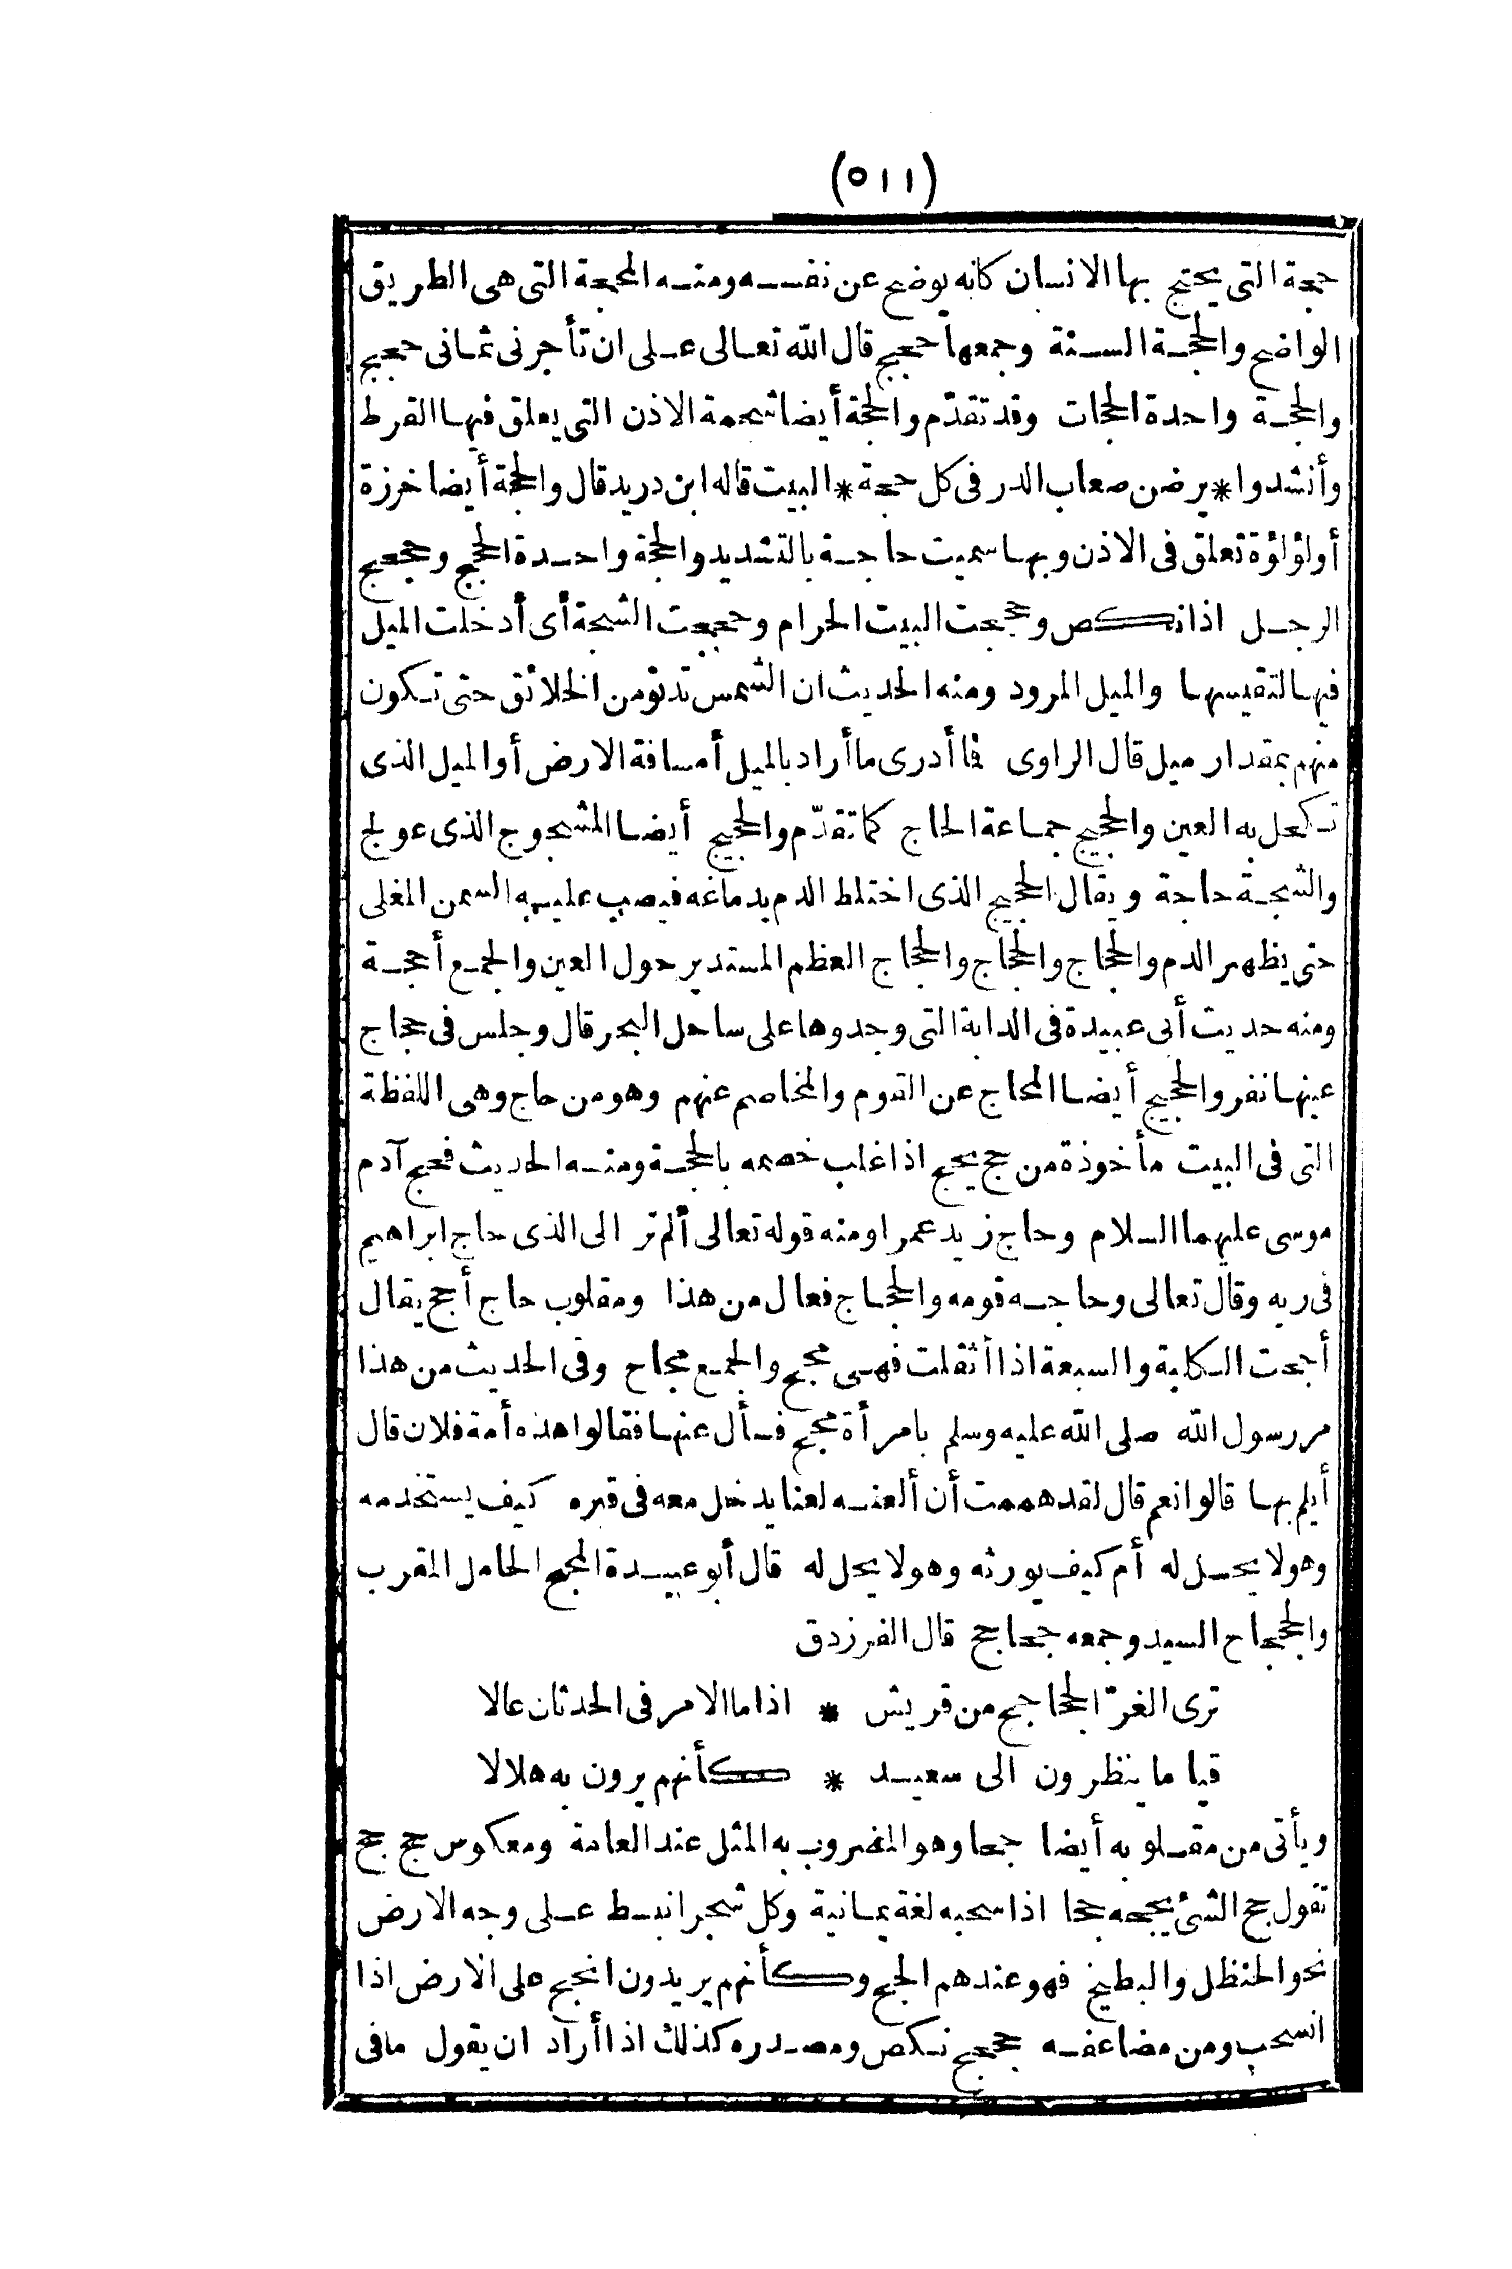 (٥١١)
حجة التى يحتج بها الانسان كانه يوضح عن نفسه ومنه المحجة التى هى الطريق
الواضح والحجة السنة وجمعها حجج قال الله تعالى على ان تأجرنى ثمانى حجج
والحجة واحدة الحجات وقد تقدّم والحجة أيضا شحمة الاذن التى يعلق فيها القرط
وأنشدوا * يرضن صعاب الدر فى كل حجة * البيت قاله ابن دريد قال والحجة أيضا خرزة
أو لؤلؤة تعلق فى الاذن وبها سميت حاجة بالتشديد والحجة واحدة الحجج وحجحج
الرجل اذا نكص وحججت البيت الحرام وحججت الشجة أى أدخلت الميل
فيها لتقيسها والميل المرود ومنه الحديث ان الشمس تدنو من الخلائق حتى تكون
منهم بمقدار ميل قال الراوى فا أدرى ما أراد بالميل أمسافة الارض أو الميل الذى
تكحل به العين والحجيج جماعة الحاج كما تقدّم والحجيج أيضا المشجوج الذى عولج
والشجة حاجة ويقال الحجيج الذى اختلط الدم بدماغه فيصب عليه السمن المغلى
حتى يظهر الدم والحجاج والحجاج والحجاج العظم المستدير حول العين والجمع أحجة
ومنه حديث أبى عبيدة فى الدابة التى وجدوها على ساحل البحر قال وجلس فى حجاج
عينها نفر والحجيج أيضا المحاج عن القوم والمخاصم عنهم وهو من حاج وهى اللفظة
التى فى البيت مأخوذة من حج يحج اذا غلب خصمه بالحجة ومنه الحديث فحج آدم
موسى عليهما السلام وحاج زيد عمرا ومنه قوله تعالى ألم تر الى الذى حاج ابراهيم
فى ربه وقال تعالى وحاجه قومه والحجاج فعال من هذا ومقلوب حاج أجح يقال
أجحت الكلبة والسبعة اذا أثقلت فهى مجح والجمع مجاح وفى الحديث من هذا
مر رسول الله صلى الله عليه وسلم بامرأة مجح فسأل عنها فقالوا هذه أمة فلان قال
أيلم بها قالوا نعم قال لقد هممت أن ألعنه لعنا يدخل معه فى قبره كيف يستخدمه
وهو لا يحل له أم كيف يورثه وهو لا يحل له قال أبو عبيدة المجح الحامل المقرب
والجحجاح السيد وجمعه جحاجح قال الفرزدق
ترى الغرّ الجحاجح من قريش * اذا ما الامر فى الحدثان عالا
قيا ما ينظرون الى سعيد * كأنهم يرون به هلالا
ويأتى من مقلوبه أيضا جحا وهو المضروب به المثل عند العامة ومعكوس حج جح
تقول جح الشئ يجحه جحا اذا سحبه لغة يمانية وكل شجر انبسط على وجه الارض
نحو الحنظل والبطيخ فهو عندهم الجح وكأنهم يريدون انجح على الارض اذا
انسحب ومن مضاعفه جحجح نكص ومصدره كذلك اذا أراد ان يقول ما فى